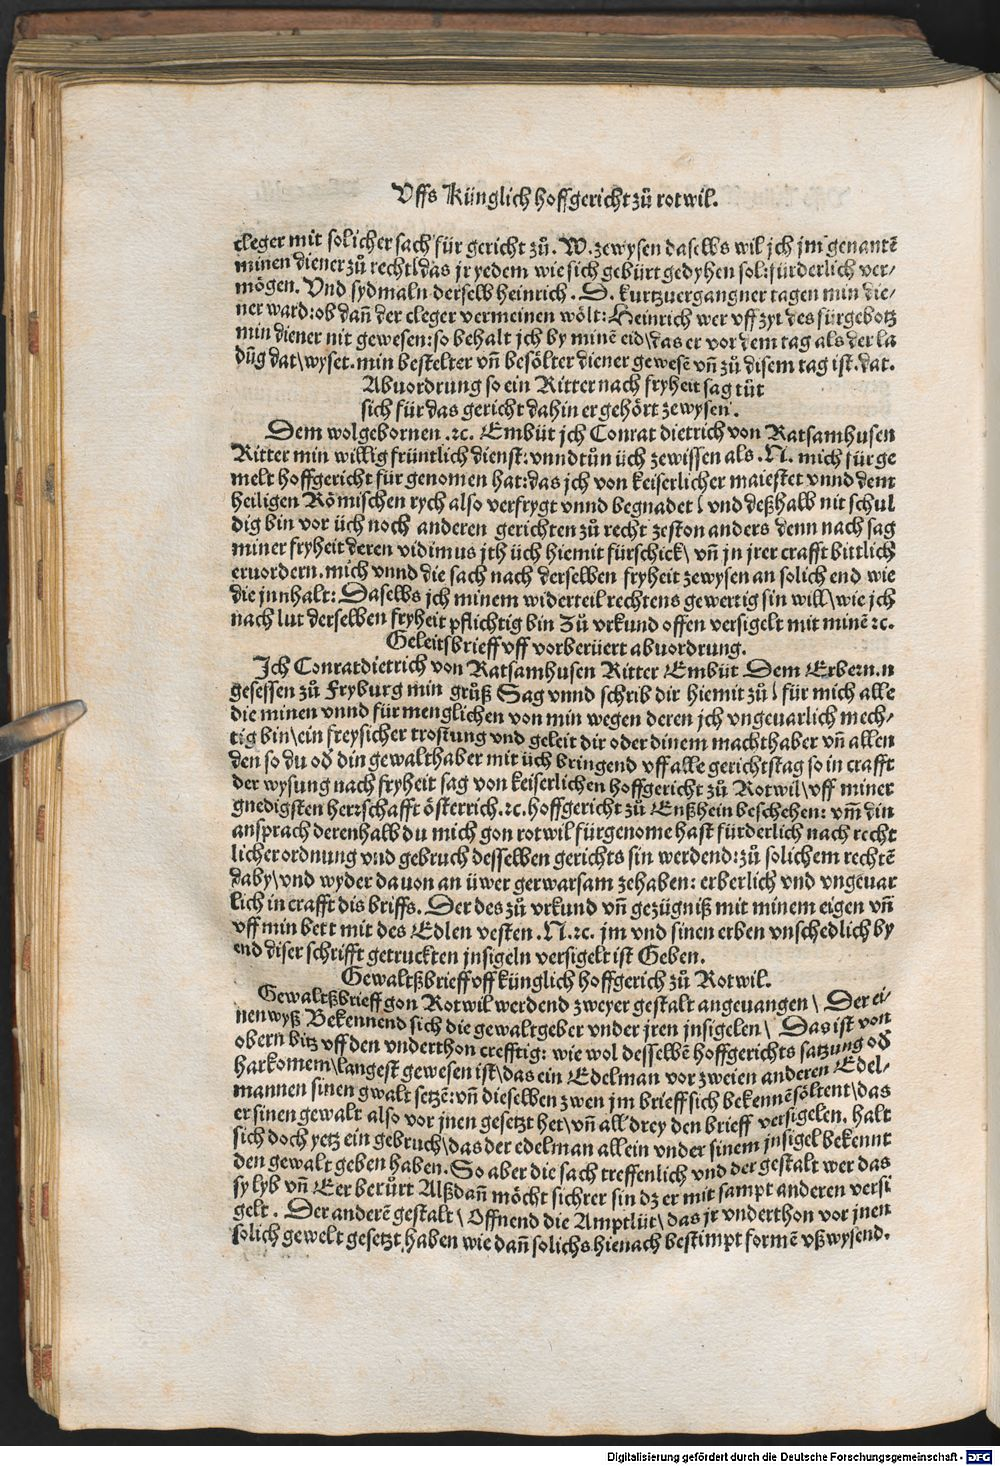 Uffs Künglich hoffgericht zů rotwil.
cleger mit solicher sach für gericht zů. W. zewysen daselbs wil jch jm genantē
minen diener zů recht\das jr yedem wie sich gebürt gedyhen sol: fürderlich ver-
mögen. Vnd sydmaln derselb heinrich. S. kurtzuergangner tagen min die-
ner ward: ob dañ der cleger vermeinen wölt: Heinrich wer vff zyt des fürgebotz
min diener nit gewesen: so behalt jch by minē eid\das er vor dem tag als der la
dūg dat\wyset. min bestelter vñ besölter diener gewesē vñ zů disem tag ist. dat.
Abuordrung so ein Ritter nach fryheit sag tůt
sich für das gericht dahin er gehört zewysen.
Dem wolgebornen .⁊c. Embüt jch Conrat dietrich von Ratsamhusen
Ritter min willig früntlich dienst: vnnd tůn üch zewissen als .N. mich für ge
melt hoffgericht für genomen hat: das jch von keiserlicher maiestet vnnd dem
heiligen Römischen rych also verfrygt vnnd begnadet \ vnd deßhalb nit schul
dig bin vor üch noch anderen gerichten zů recht zeston anders denn nach sag
miner fryheit deren vidimus jch üch hiemit fürschick\ vñ jn jrer crafft bittlich
eruordern. mich vnnd die sach nach derselben fryheit zewysen an solich end wie
die jnnhalt: Daselbs jch minem widerteil rechtens gewertig sin will\wie jch
nach lut derselben fryheit pflichtig bin Zů vrkund offen versigelt mit minē ⁊c.
Geleitsbrieff vff vorberüert abuordrung.
Jch Conratdietrich von Ratsamhusen Ritter Embüt Dem Erbern. n
gesessen zů Fryburg min grůß Sag vnnd schrib dir hiemit zů \ für mich alle
die minen vnnd für menglichen von min wegen deren jch vngeuarlich mech-
tig bin\ein freysicher trostung vnd geleit dir oder dinem machthaber vñ allen
den so du oď din gewalthaber mit üch bringend vff alle gerichtstag so in crafft
der wysung nach fryheit sag von keiserlichen hoffgericht zů Rotwil\vff miner
gnedigsten herrschafft österrich. ⁊c. hoffgericht zů Enßhein beschehen: vm̄ din
ansprach derenhalb du mich gon rotwil fürgenome hast fürderlich nach recht
licher ordnung vnd gebruch desselben gerichts sin werdend: zů solichem rechtē
daby\vnd wyder dauon an üwer gerwarsam zehaben: erberlich vnd vngeuar
lich in crafft dis briffs. Der des zů vrkund vñ gezügniß mit minem eigen vñ
vff min bett mit des Edlen vesten .N. ⁊c. jm vnd sinen erben vnschedlich by
end diser schrifft getruckten jnsigeln versigelt ist Geben.
Gewaltßbrieff vff künglich hoffgerich zů Rotwil.
Gewaltßbrieff gon Rotwil werdend zweyer gestalt angeuangen \ Der ei-
nen wyß Bekennend sich die gewaltgeber vnder jren jnsigelen \ Das ist von
obern bitz vff den vnderthon crefftig: wie wol desselbē hoffgerichts satzung oď
harkomem\langest gewesen ist\das ein Edelman vor zweien anderen Edel-
mannen sinen gwalt setzē: vñ dieselben zwen jm brieff sich bekennē söltent\das
er sinen gewalt also vor jnen gesetzt het\vñ all drey den brieff versigelen. halt
sich doch yetz ein gebruch\das der edelman allein vnder sinem jnsigel bekennt
den gewalt geben haben. So aber die sach treffenlich vnd der gestalt wer das
sy lyb vñ Eer berůrt Alßdañ möcht sichrer sin dz er mit sampt anderen versi
gelt. Der anderē gestalt \ Offnend die Amptlüt\das jr vnderthon vor jnen
solich gewelt gesetzt haben wie dañ solichs hienach bestimpt formē vßwysend.
Digitalisierung gefördert durch die Deutsche Forschungsgemeinschaft - DFG